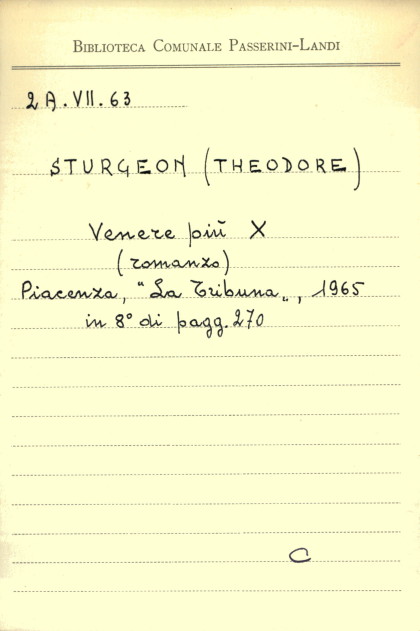 BIBLIOTECA COMUNALE PASSERINI-LANDI
2A.VII.63
STURGEON (THEODORE)
Venere più X
(romanzo)
Piacenza, "La Tribuna„, 1965
in 8° di pagg. 270
C